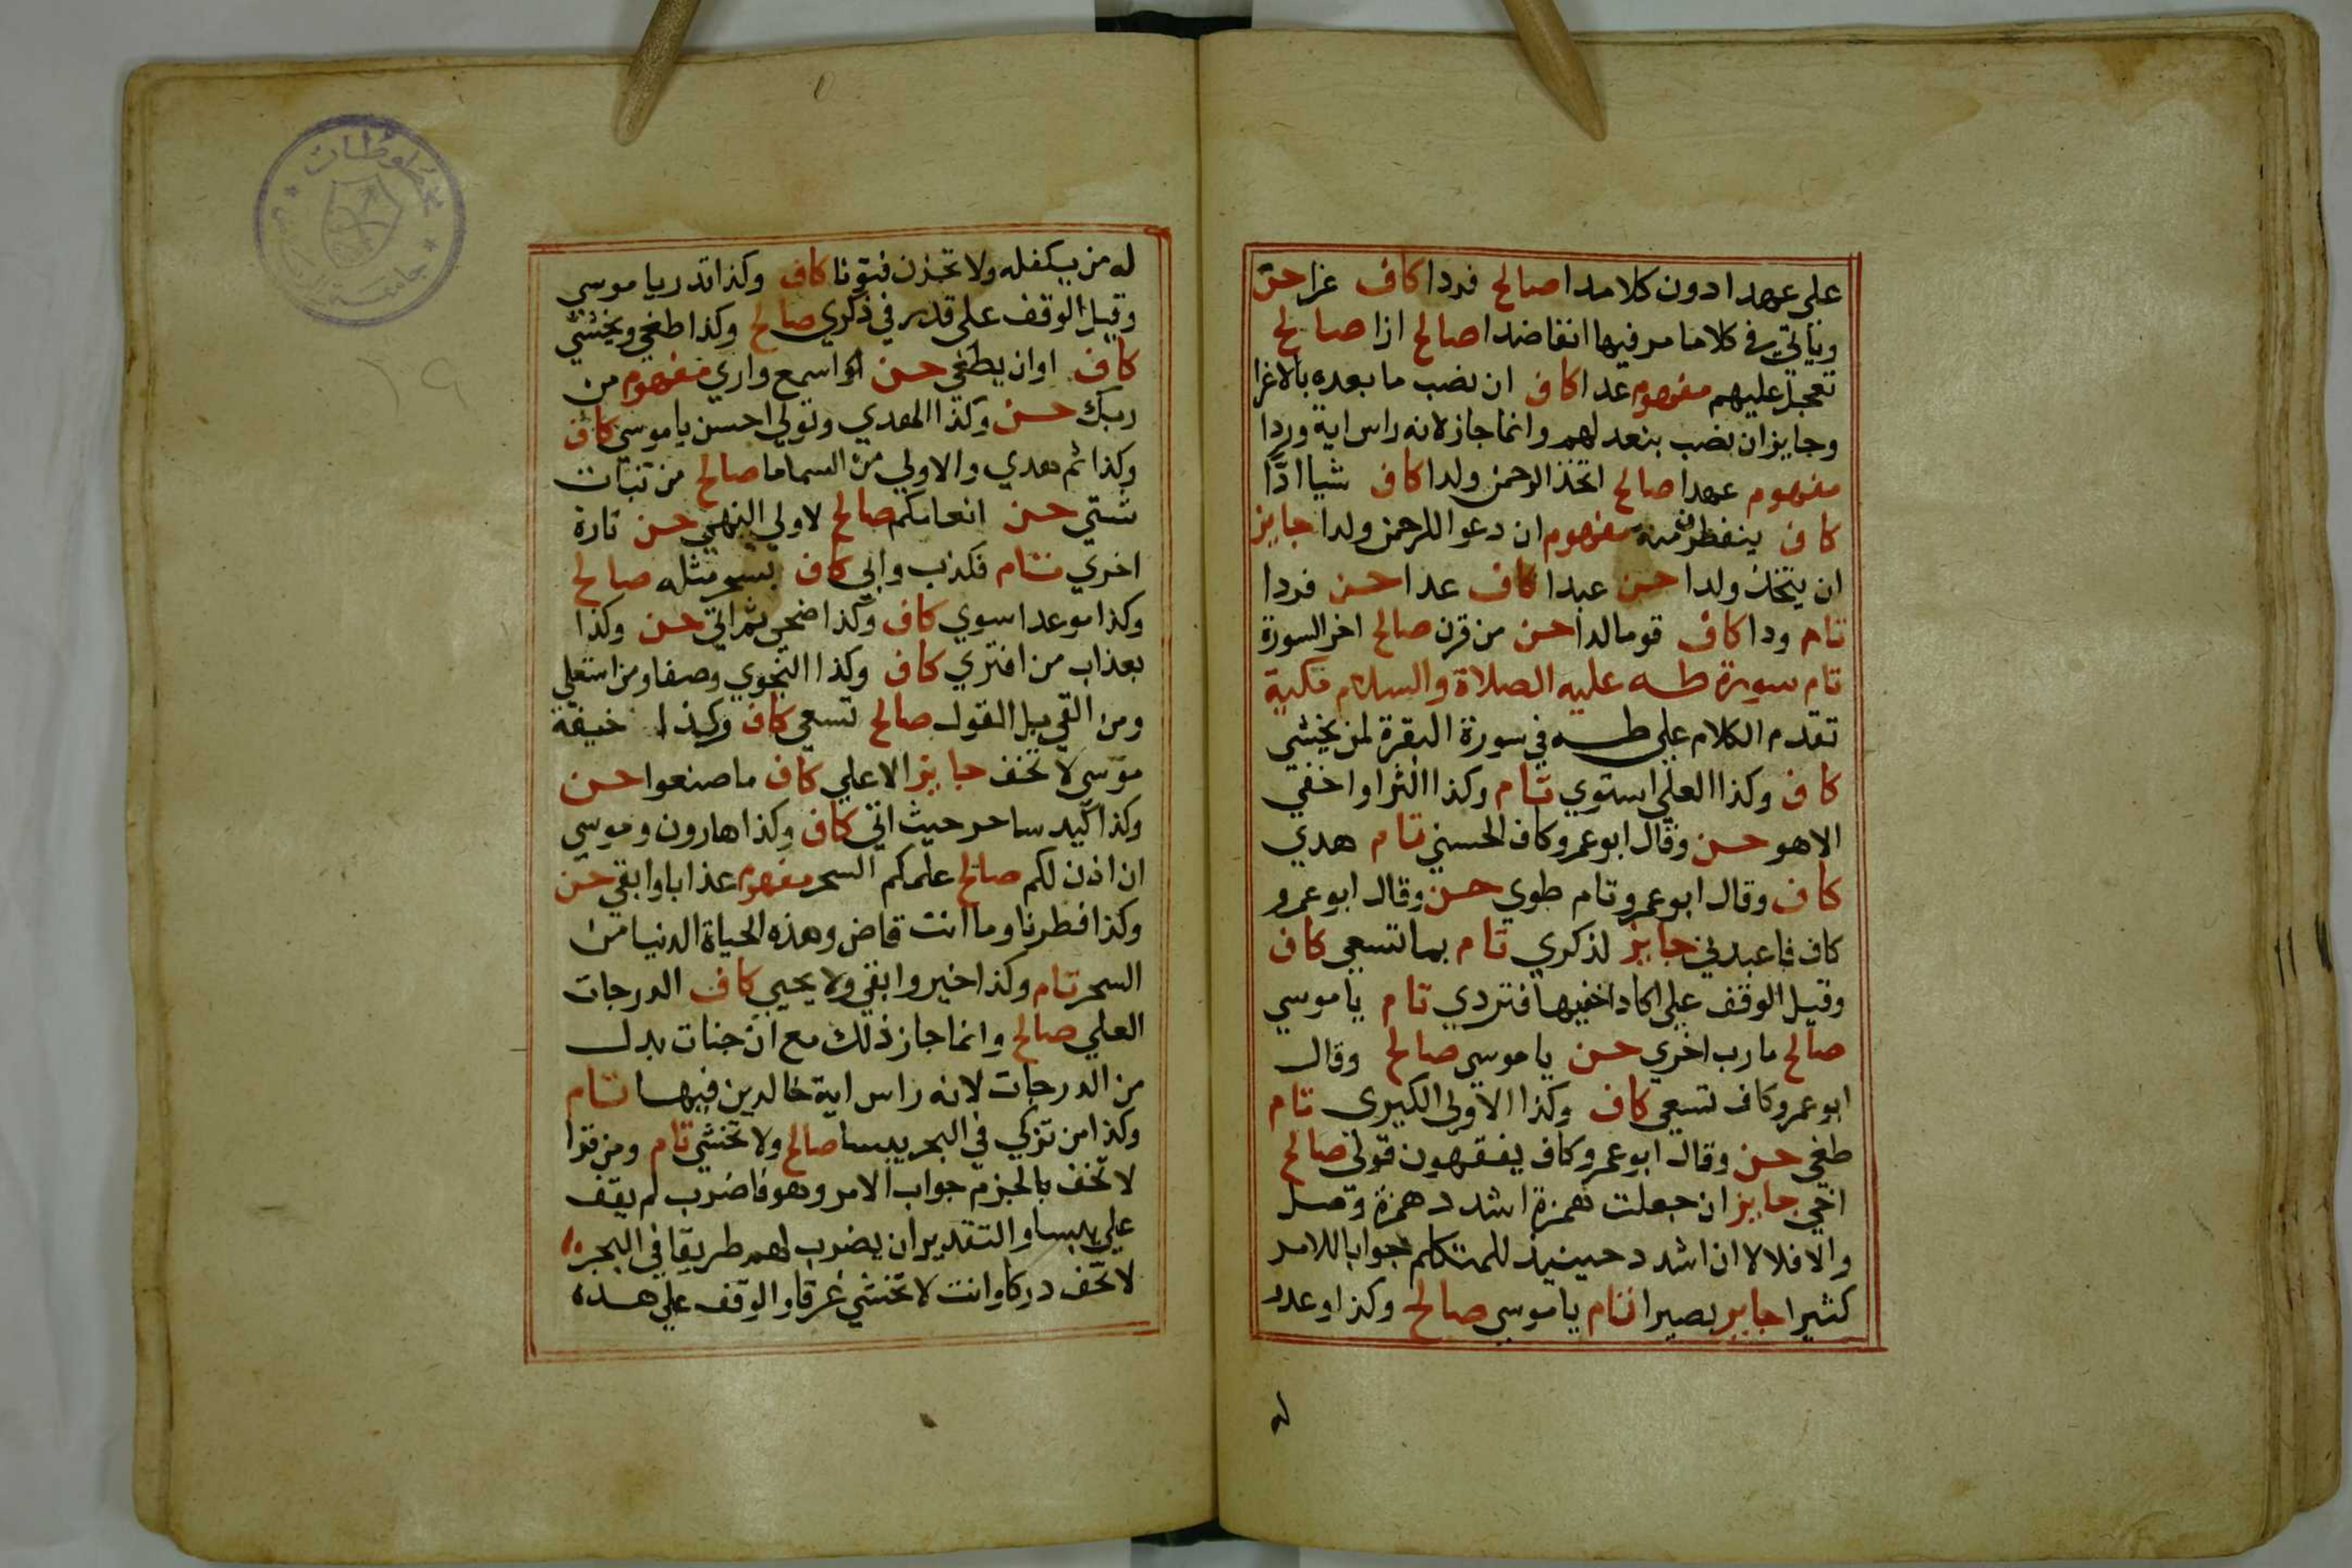 على عهدا دون كلا مدا صالح فردا كاف عزا حسن
وياتي في كلا ما مر فيها انفا ضدا صالح ازا صالح
تعجل عليهم مفهوم عدا كاف ان نصب ما بعده بالاغرا
وجايز ان نصب بنعد لهم وانما جاز لانه راس اية وردا
مفهوم عهدا صالح اتخذ الرحمن ولدا كاف شيا ادّا
كاف ينفطرن منه مفهوم ان دعوا للرحمن ولدا جايز
ان يتخذ ولدا حسن عبدا كاف عدا حسن فردا
تام ودا كاف قوما لدا حسن من قرن صالح اخر السورة
تام سورة طه عليه الصلاة والسلام مكية
تقدم الكلام على طه في سورة البقرة لمن يخشي
كاف وكذا العلي استوي تام وكذا الثرا واخفي
الا هو حسن وقال ابو عمرو كاف الحسني تام هدي
كاف وقال ابو عمرو تام طوي حسن وقال ابو عمرو
كاف فاعبدني جايز لذكري تام بما تسعي كاف
وقيل الوقف على اكاد اخفيها فتردي تام يا موسي
صالح مارب اخري حسن يا موسي صالح وقال
ابو عمرو كاف تسعي كاف وكذا الاولي الكبري تام
طغي حسن وقال ابو عمرو كاف يفقهون قولي صالح
اخي جايز ان جعلت همزة اشدد همزة وصل
والا فلا لان اشدد حينيذ للمتكلم جوابا للامر
كثيرا جايز بصيرا تام يا موسي صالح وكذا وعدو
له
له من يكفله ولا تحزن فتونا كاف وكذا قدر يا موسي
وقيل الوقف على قدر في ذكري صالح وكذا طغي ويخشي
كاف او ان يطغي حسن اسمع واري مفهوم من
ربك حسن وكذا الهدي وتولي احسن يا موسي كاف
وكذا ثم هدي والاولي من السما ما صالح من نبات
شتي حسن انعامكم صالح لاولي النهي حسن تارة
اخري تام فكذب وابي كاف بسحر مثله صالح
وكذا موعدا سوي كاف وكذا ضحي ثم اتي حسن وكذا
بعذاب من افتري كاف وكذا النجوي وصفا ومن استعلي
ومن القي بل القوا صالح تسعي كاف وكذا خيفة
موسي لا تخف جايز الاعلي كاف ما صنعوا حسن
وكذا كيد ساحر حيث اتي كاف وكذا هارون وموسي
ان اذن لكم صالح علمكم السحر مفهوم عذابا وابقي حسن
وكذا فطرنا وما انت قاض وهذه الحياة الدنيا من
السحر تام وكذا خير وابقي ولا يحيي كاف الدرجات
العلي صالح وانما جاز ذلك مع ان جنات بدل
من الدرجات لانه راس اية خالدين فيها تام
وكذا من تزكي في البحر يبسا صالح ولا تخشي تام ومن قرا
لا تخف بالجزم جواب الامر وهو فاضرب لم يقف
على يبسا والتقدير ان يضرب لهم طريقا في البحر
لا تخف دركا وانت لا تخشي غرقا والوقف على هذه